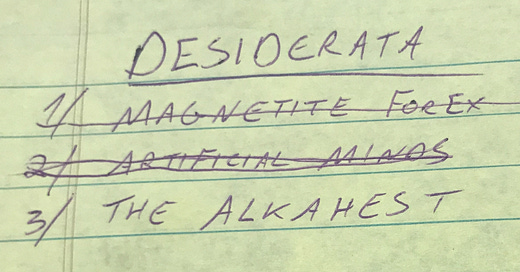 DESIDERATA
1/ MAGNETITE FOREX
2/ ARTIFICIAL MINDS
3/ THE ALKAHEST